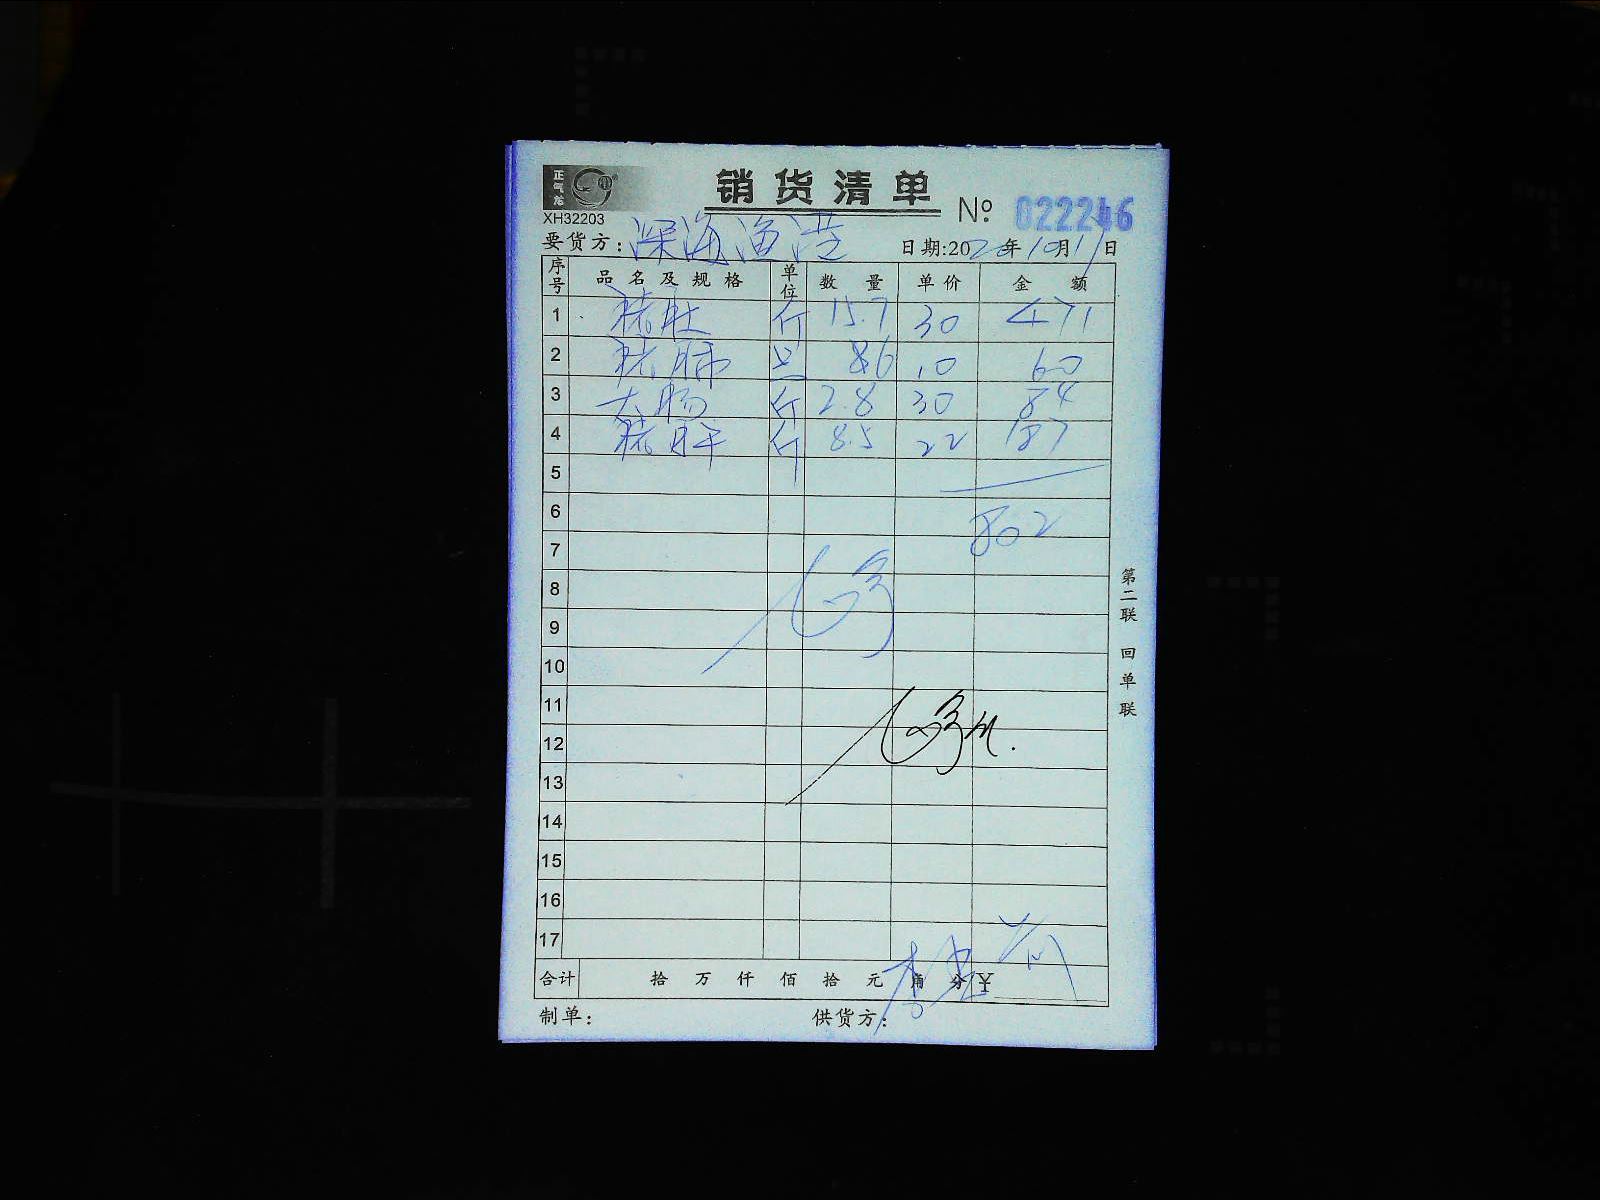 正气龙
XH32203
销货清单
№ 022246
要货方：深海渔港 日期:2020年10月11日
序号 品名及规格 单位 数量 单价 金额
1 猪肚 斤 15.7 30 471
2 猪肺 只 6 10 60
3 大肠 斤 2.8 30 84
4 猪肝 斤 8.5 22 187
5
6 802
7
8
9
10
11
12
13
14
15
16
17
合计 拾 万 仟 佰 拾 元 角 分 ¥
制单： 供货方：
第二联 回单联